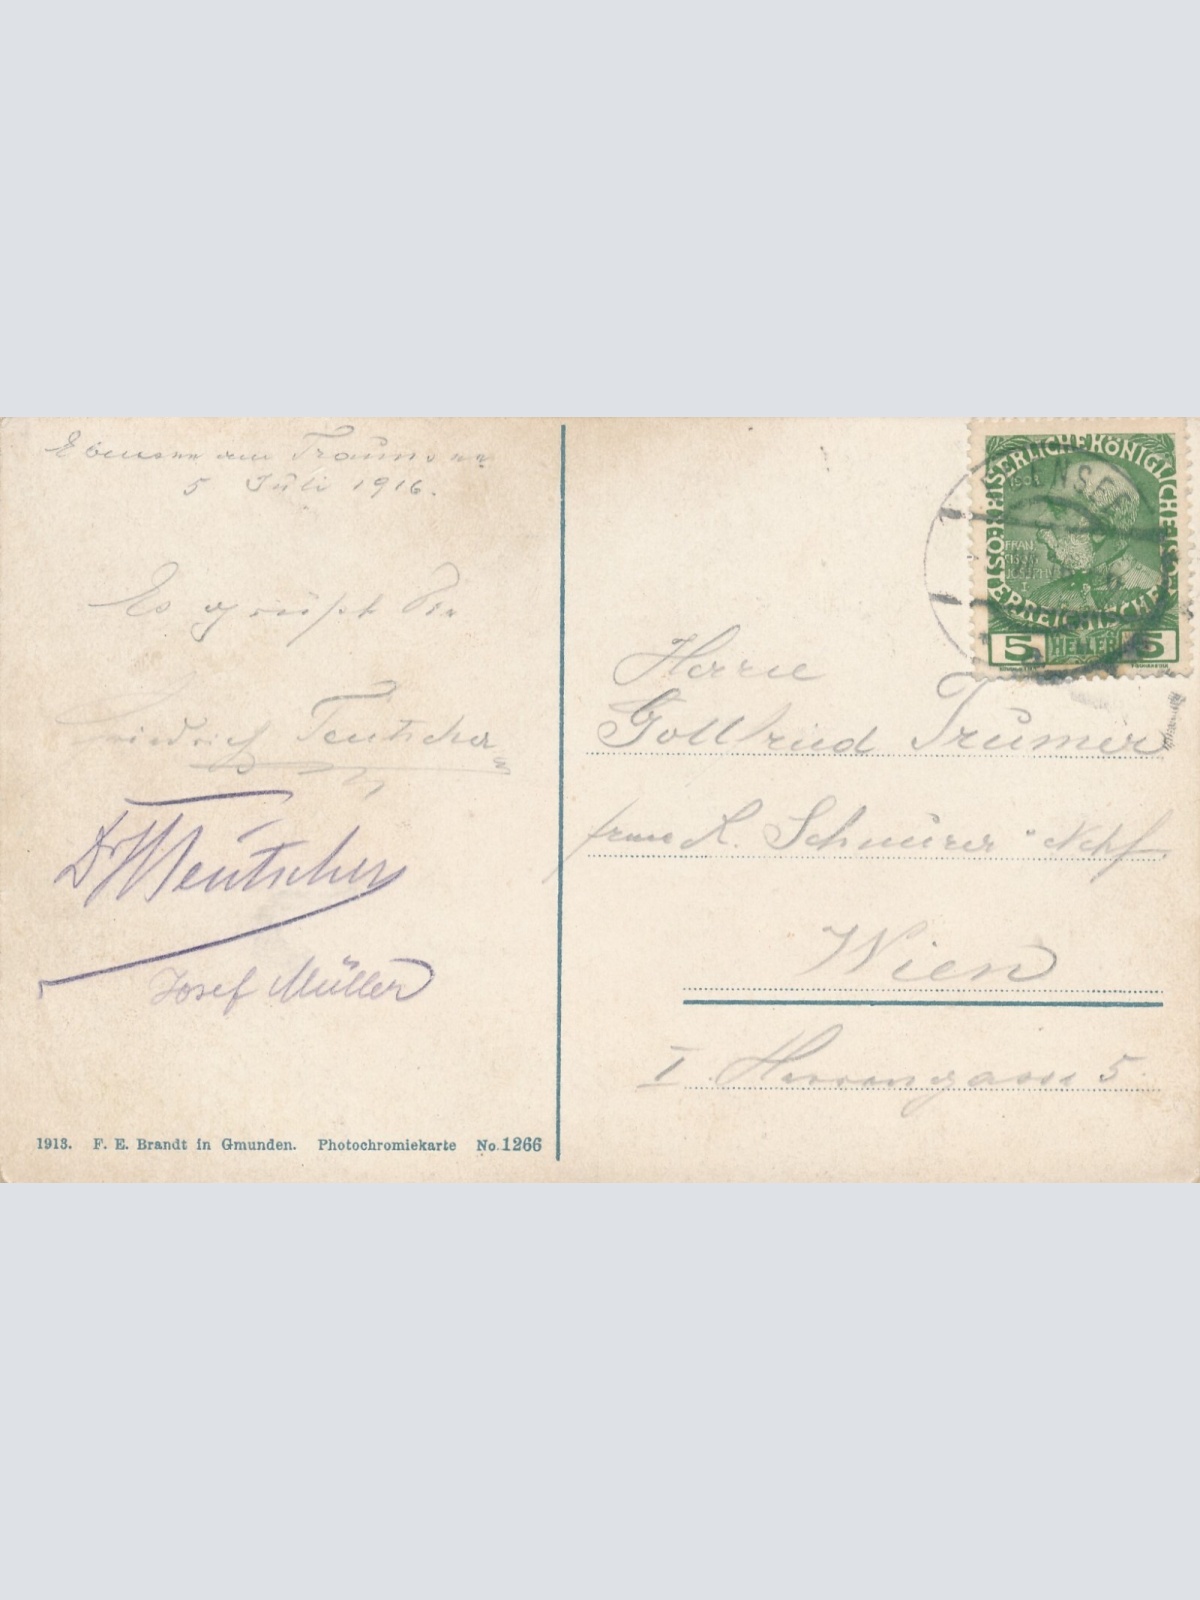 Ebensee am Traunsee
5 Juli 1916.
Es grüßt Dir
Friedrich Teutscher
Dr Teutscher
Josef Müller
1913. F. E. Brandt in Gmunden. Photochromiekarte No. 1266
ÖSTERREICHISCHE KAISERLICHE KÖNIGLICHE POST
FRAN
CISCVS
IOSEPHVS
I
5 HELLER 5
NSEE
Herrn
Gottfried Trumer
K. Schnürer Nchf.
Wien
I. Herrengasse 5.